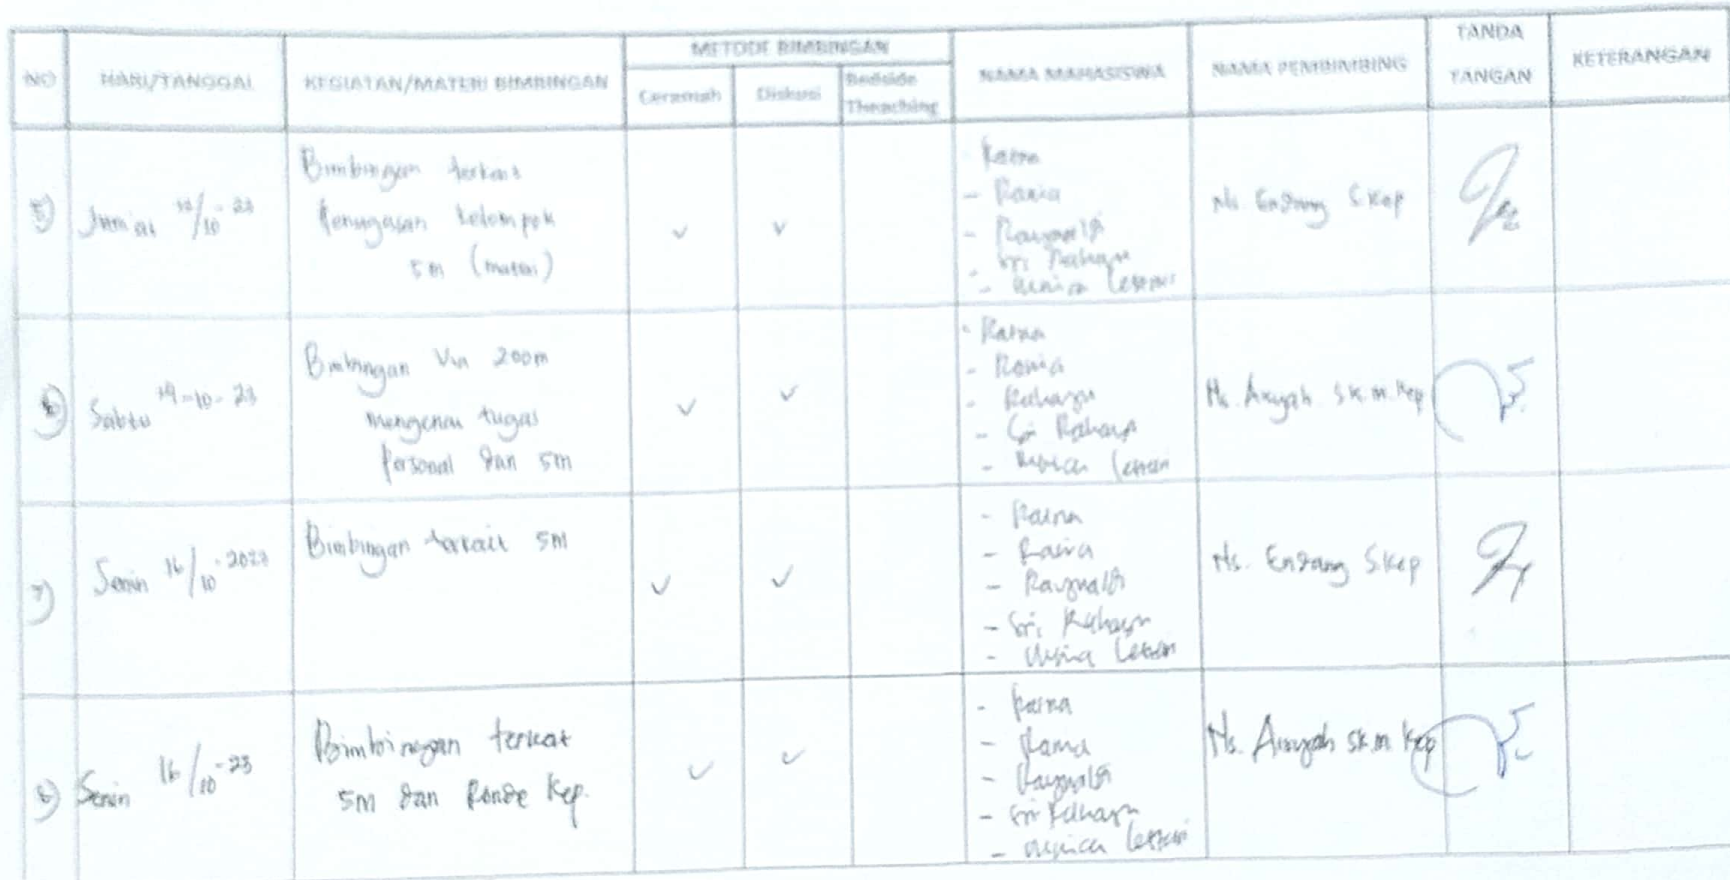 NO
HARI/TANGGAL
KEGIATAN/MATERI BIMBINGAN
METODE BIMBINGAN
Ceramah
Diskusi
Bedside
Theaching
NAMA MAHASISWA
NAMA PEMBIMBING
TANDA
TANGAN
KETERANGAN
5)
Jum'at
Bimbingan terkait
Penugasan kelompok
5m (materi)
- Ratna
- Rania
- Raynaldi
- Sri Rahayu
- Lestari
Ns. Endang S.Kep
6)
Sabtu 14-10-23
Bimbingan Via Zoom
mengenai tugas
Personal dan 5m
- Ratna
- Rania
- Rahayu
- Sri Rahayu
- Lestari
Ns. Aisyah S.K.M.Kep
7)
Senin 16/10-2023
Bimbingan terkait 5m
- Ratna
- Rania
- Raynaldi
- Sri Rahayu
- Lestari
Ns. Endang S.Kep
8)
Senin 16/10-23
Bimbingan terkait
5m dan Ronde Kep.
- Ratna
- Rania
- Raynaldi
- Sri Rahayu
- Lestari
Ns. Aisyah S.K.M Kep